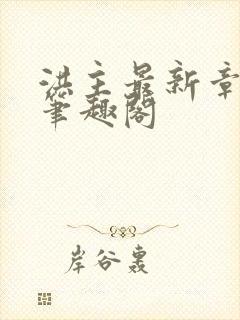 洪主最新章
笔趣阁
岸谷轰